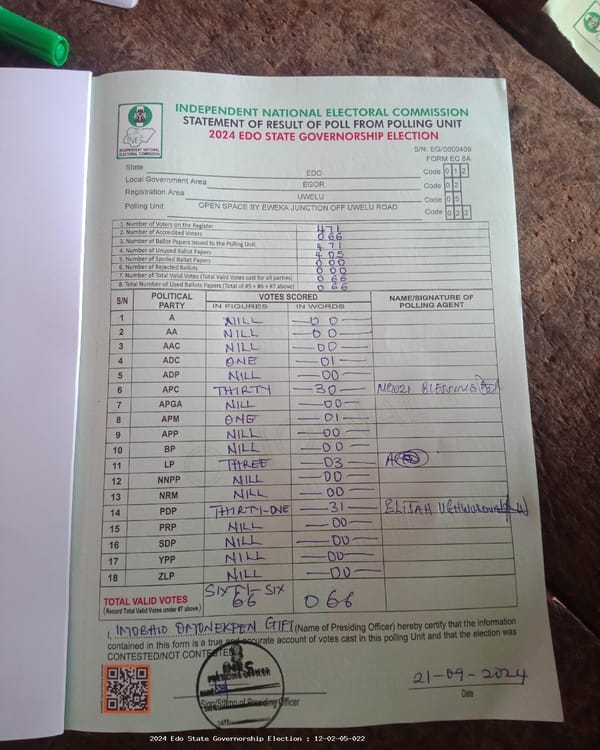 INDEPENDENT NATIONAL ELECTORAL COMMISSION
STATEMENT OF RESULT OF POLL FROM POLLING UNIT
2024 EDO STATE GOVERNORSHIP ELECTION
INDEPENDENT NATIONAL ELECTORAL COMMISSION
S/N: EG/0000409
FORM EC 8A
State EDO Code 0 1 2
Local Government Area EGOR Code 0 2
Registration Area UWELU Code 0 5
Polling Unit OPEN SPACE BY EWEKA JUNCTION OFF UWELU ROAD Code 0 2 2
1. Number of Voters on the Register 471
2. Number of Accredited Voters 066
3. Number of Ballot Papers Issued to the Polling Unit 471
4. Number of Unused Ballot Papers 405
5. Number of Spoiled Ballot Papers 000
6. Number of Rejected Ballots 000
7. Number of Total Valid Votes (Total Valid Votes cast for all parties) 066
8. Total Number of Used Ballots Papers (Total of #5 + #6 + #7 above) 066
S/N POLITICAL PARTY VOTES SCORED NAME/SIGNATURE OF POLLING AGENT
IN FIGURES IN WORDS
1 A NILL 00
2 AA NILL 00
3 AAC NILL 00
4 ADC ONE 01
5 ADP NILL 00
6 APC THIRTY 30 BLESSING
7 APGA NILL 00
8 APM ONE 01
9 APP NILL 00
10 BP NILL 00
11 LP THREE 03
12 NNPP NILL 00
13 NRM NILL 00
14 PDP THIRTY-ONE 31 ELIJAH
15 PRP NILL 00
16 SDP NILL 00
17 YPP NILL 00
18 ZLP NILL 00
TOTAL VALID VOTES SIXTY-SIX 66 066
(Record Total Valid Votes under #7 above)
I, IMOBHIO OMONEKPEN GIFT (Name of Presiding Officer) hereby certify that the information
contained in this form is a true and accurate account of votes cast in this polling Unit and that the election was
CONTESTED/NOT CONTESTED
INEC
PRESIDING OFFICER
Sign/Stamp of Presiding Officer
DATE:
21-09-2024
Date
2024 Edo State Governorship Election : 12-02-05-022